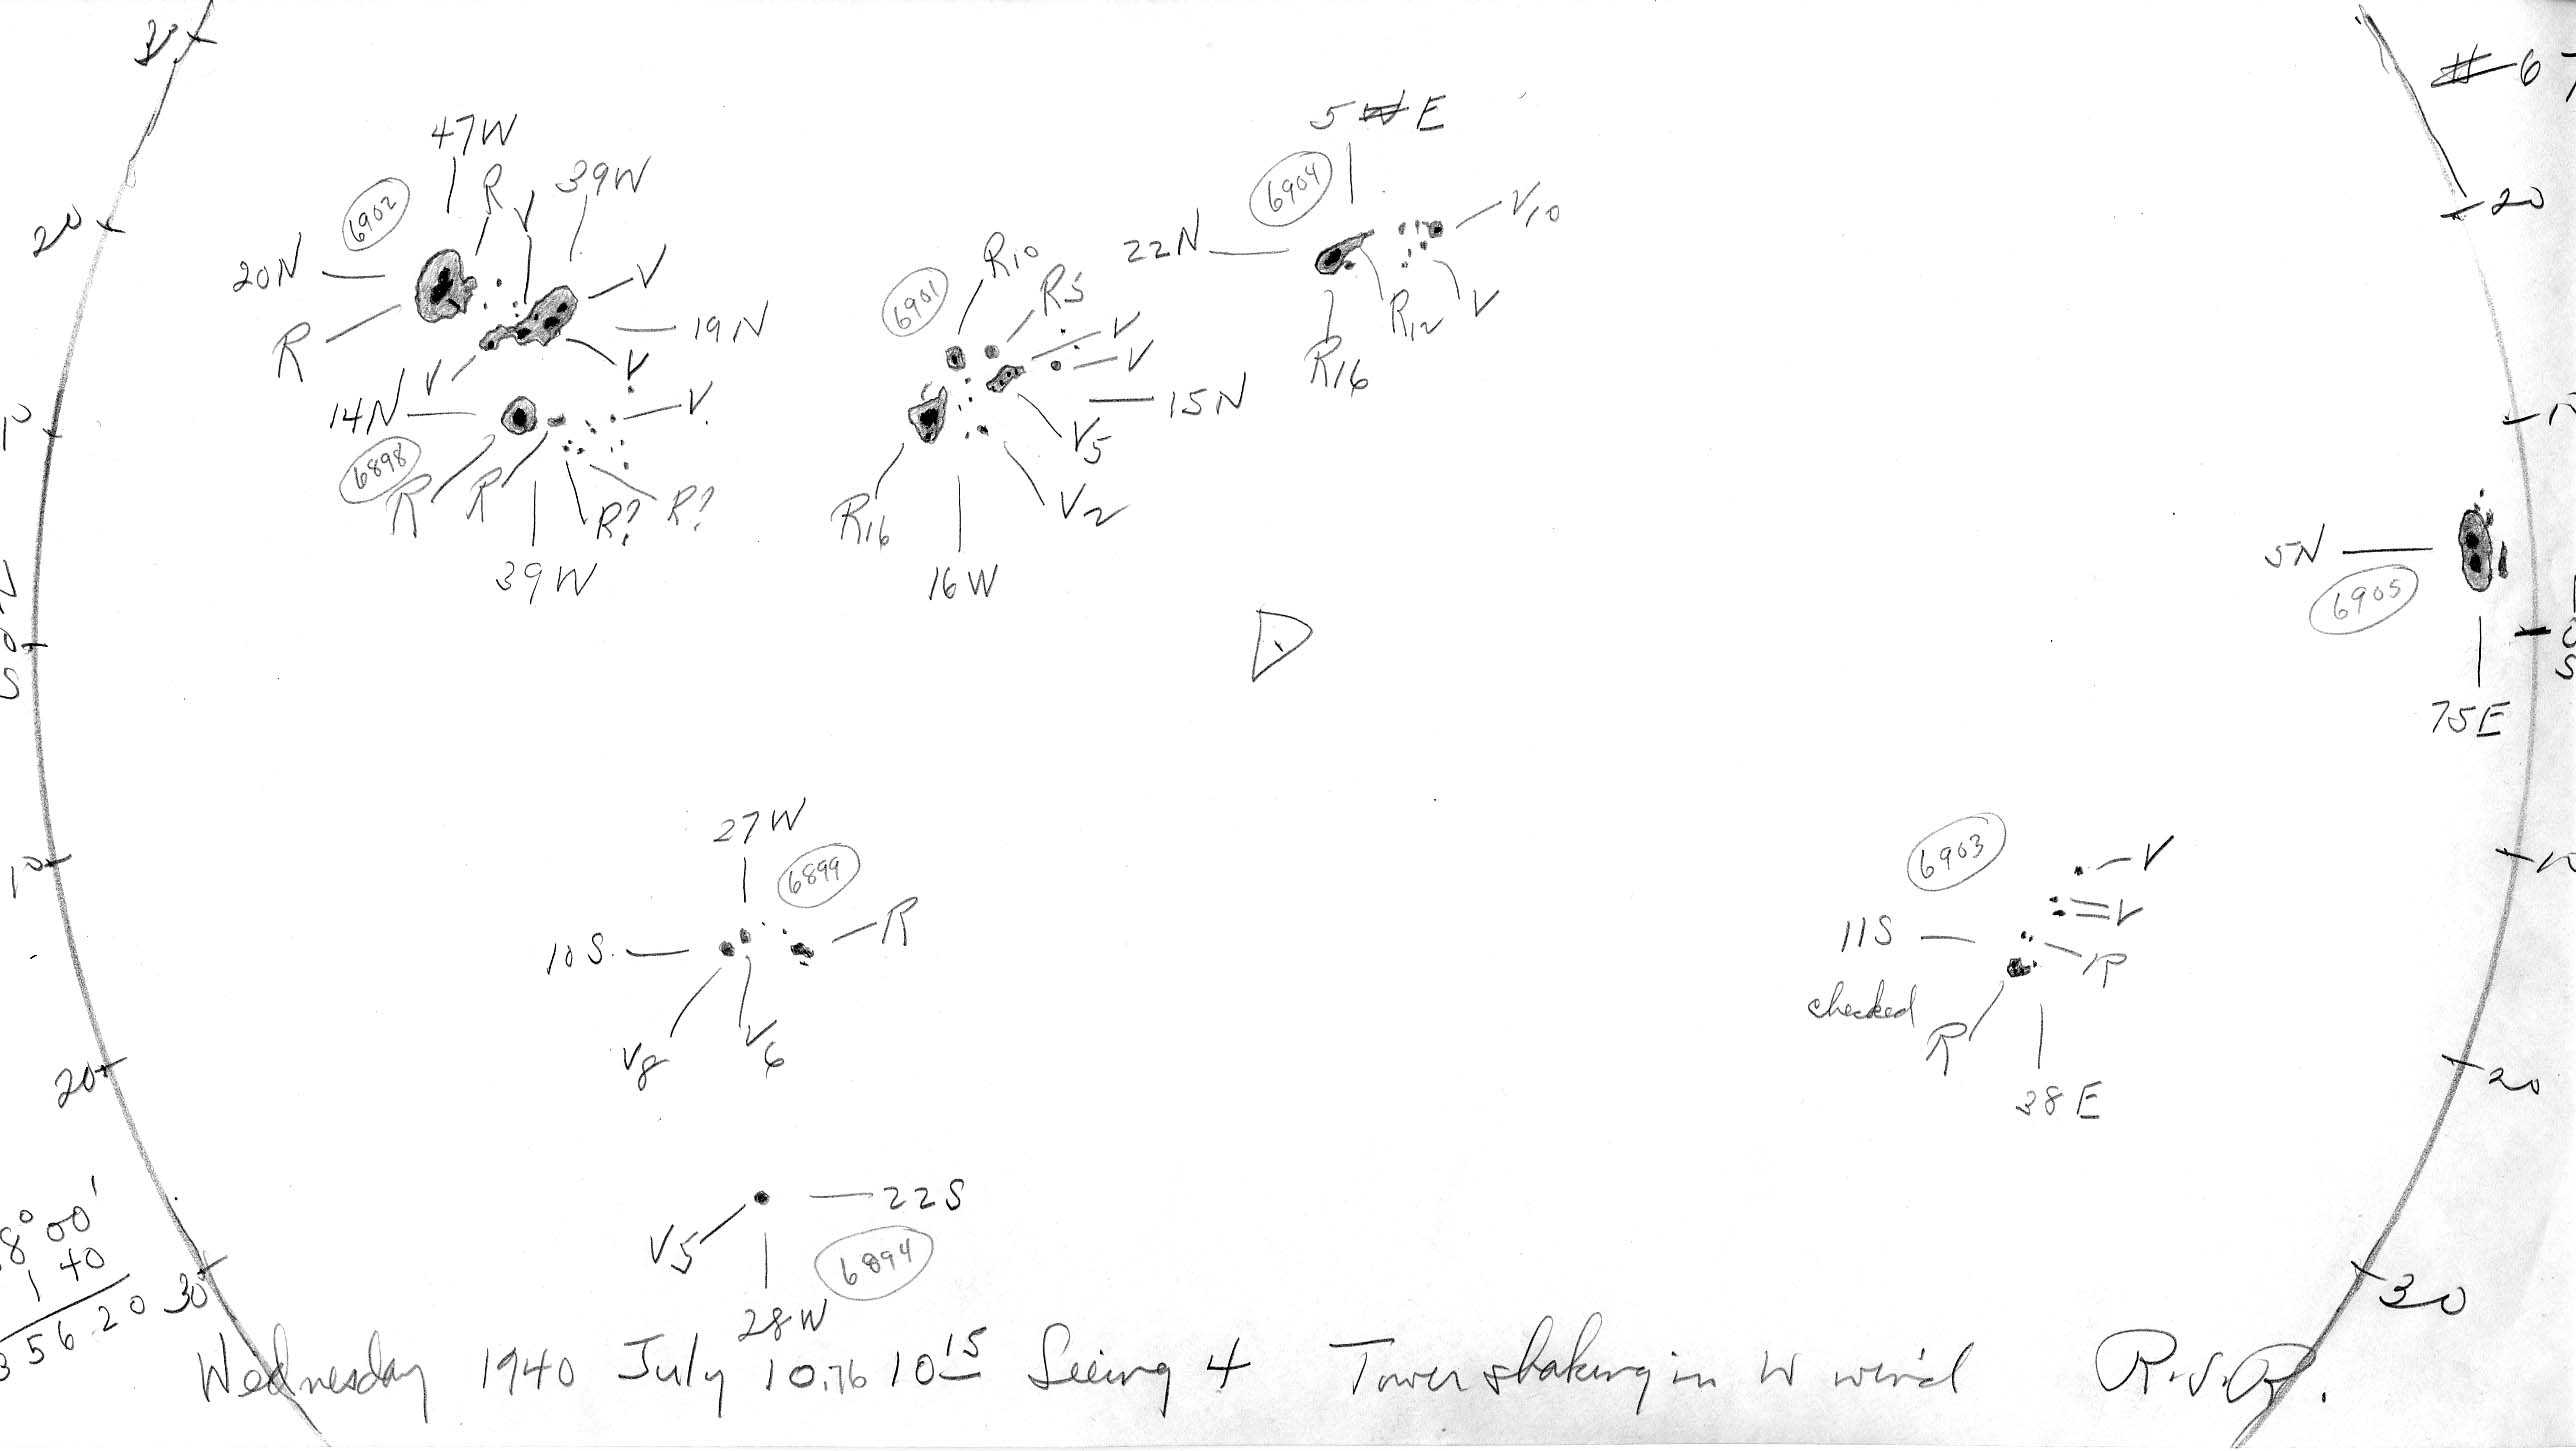 30
# 6
47W
5 E
R V 39W
6902
6904
20
20N
22N
V10
20
R10
V
6901
R5
R12 V
19N
V
R
V
V
R16
14N
V
V
15N
10
6898
V5
R R
R? R?
R16
V2
39W
16W
5N
6905
N
0
S
0
S
75E
27W
6899
6903
V
10
10
R
V
10S.
11S
R
checked
V8
V6
R
20
20
38E
22S
V5
6894
28W
8° 00'
1 40
56.20
30
30
Wednesday 1940 July 10.76 10 15 Seeing 4 Tower shaking in W wind R.S.R.